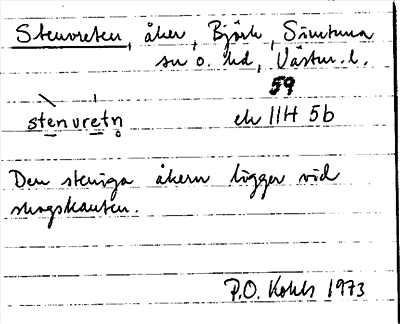 Stenvreten, åker, Björk, Simtuna
sn o. hd, Västm. l.
59
stenvretn̥ ek 11H 5b
Den steniga åkern ligger vid
skogskanten.
P.O. Kohls 1973